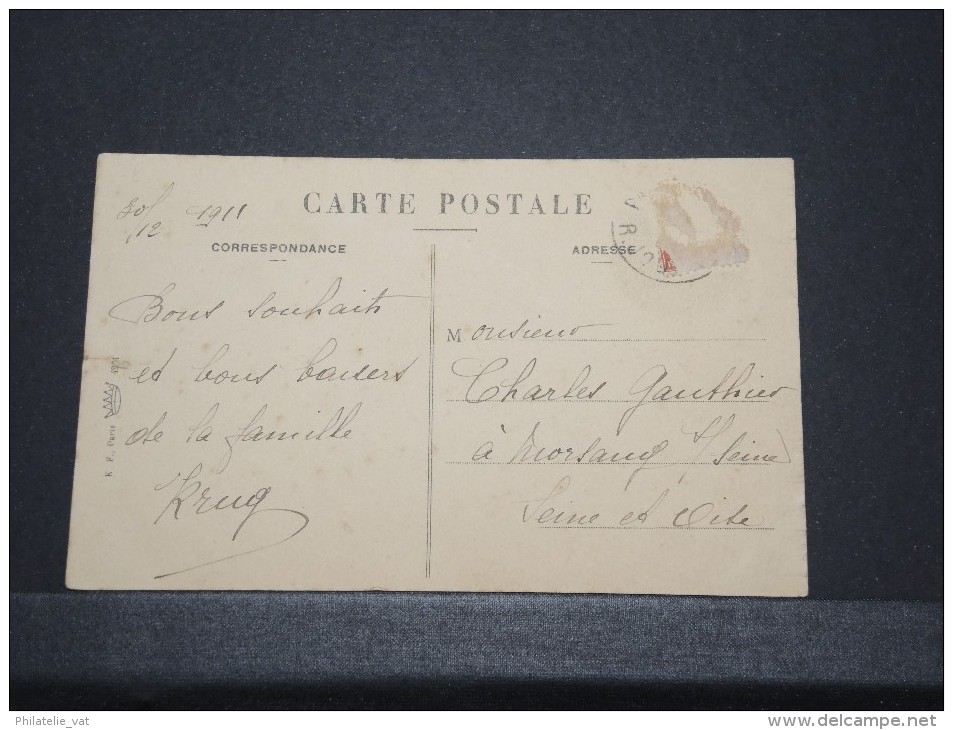 30/12 1911
CARTE POSTALE
CORRESPONDANCE
ADRESSE
Bons souhaits
et bons baisers
de la famille
Krug
K. F., Paris
Monsieur
Charles Gauthier
à Morsang s/ Seine
Seine et Oise
Philatelie_vat
www.delcampe.net